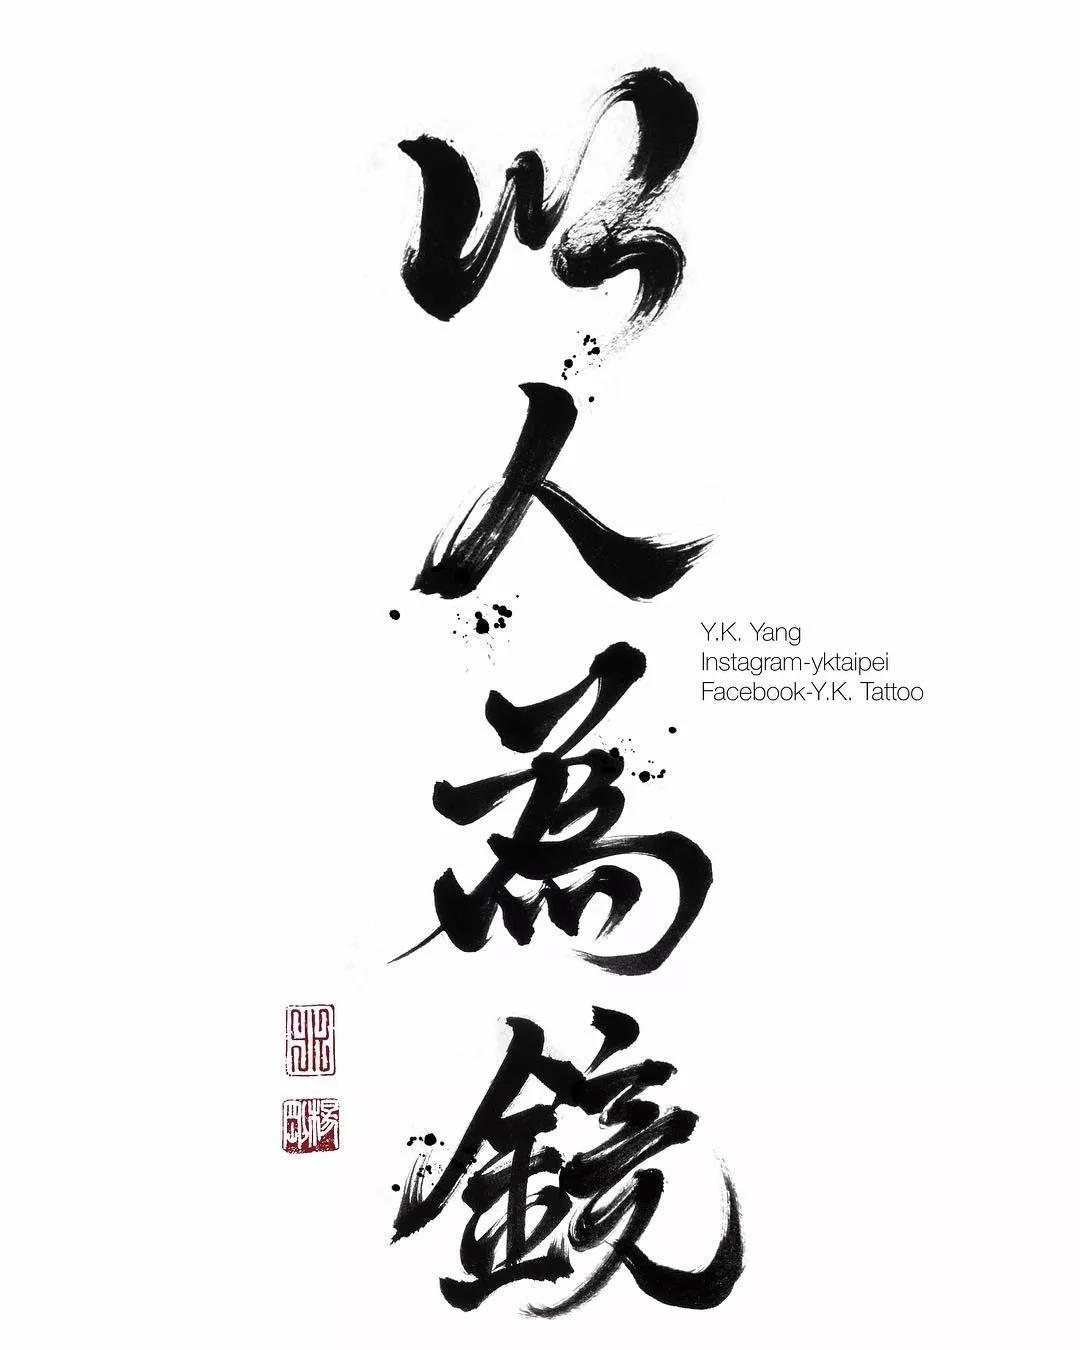 以人為鏡
Y.K. Yang
Instagram-yktaipei
Facebook-Y.K. Tattoo